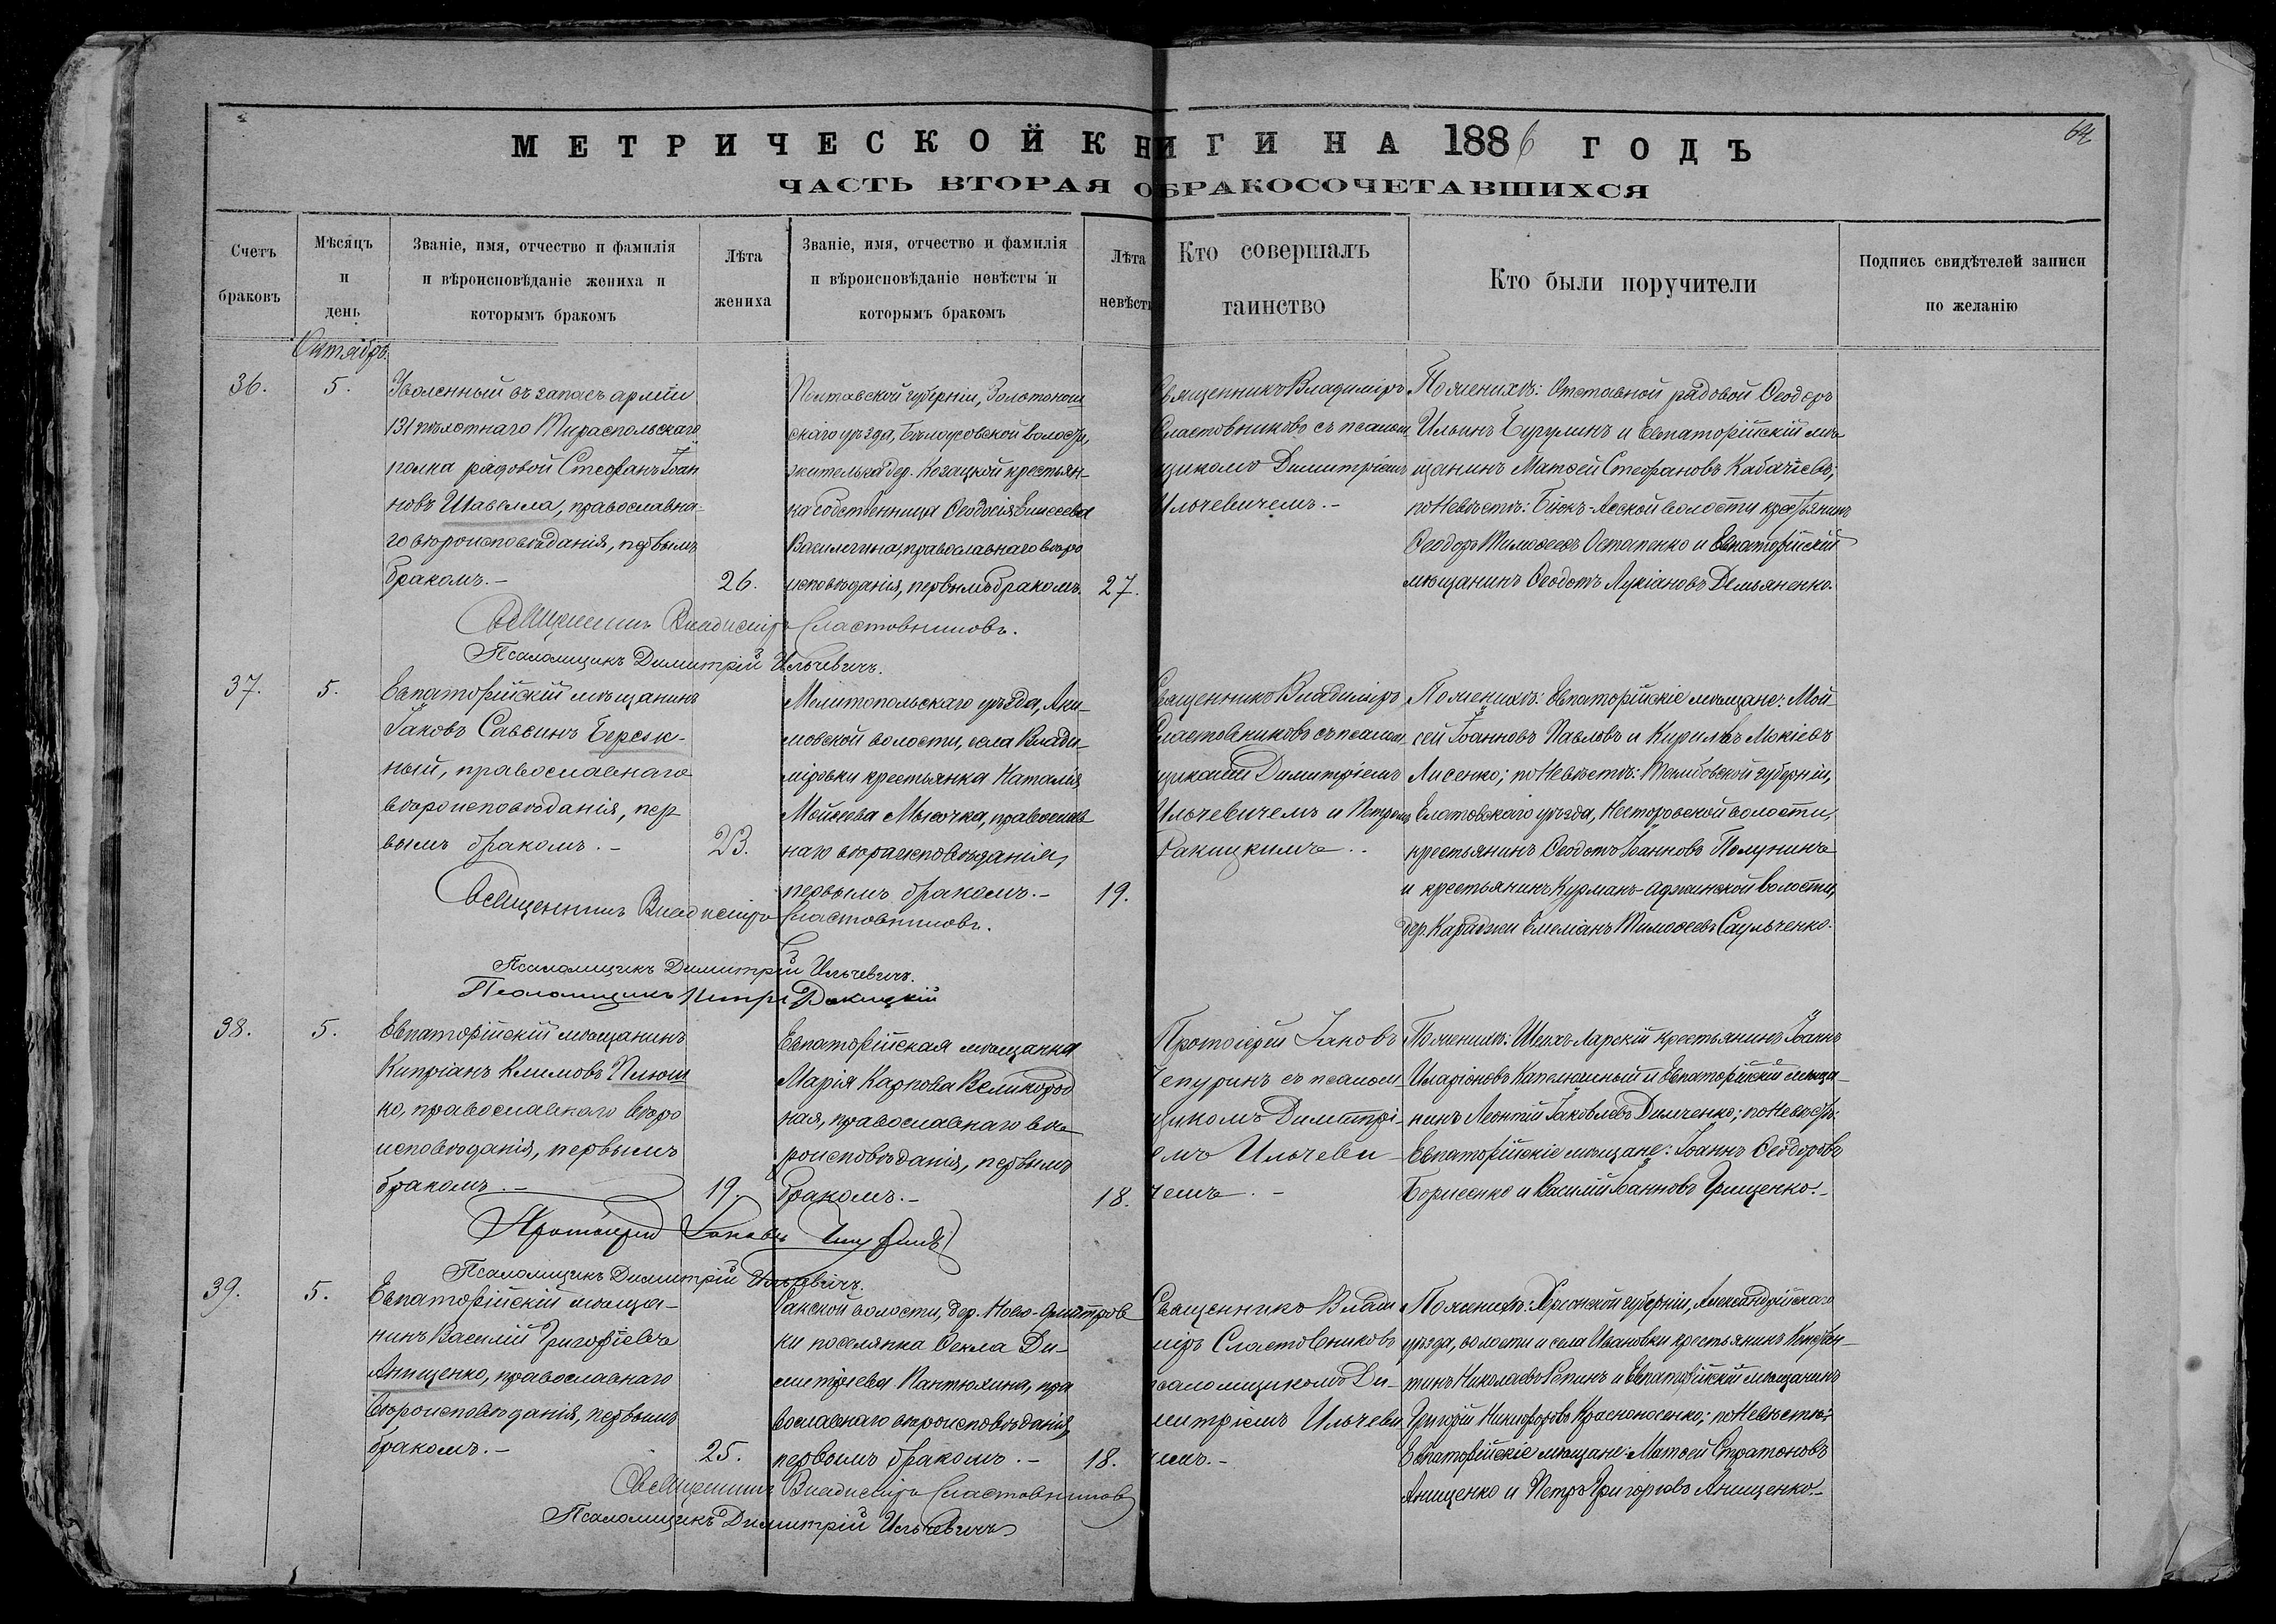 МЕТРИЧЕСКОЙ КНИГИ НА 1886 ГОДЪ
64
ЧАСТЬ ВТОРАЯ О БРАКОСОЧЕТАВШИХСЯ
Счетъ
браковъ
Мѣсяцъ
и
день
Званіе, имя, отчество и фамилія
и вѣроисповѣданіе жениха и
которымъ бракомъ
Лѣта
жениха
Званіе, имя, отчество и фамилія
и вѣроисповѣданіе невѣсты и
которымъ бракомъ
Лѣта
невѣсты
Кто совершалъ
таинство
Кто были поручители
Подпись свидѣтелей записи
по желанію
Октябрь.
36.
5.
Уволенный въ запасъ арміи
131 пѣхотнаго Тираспольскаго
полка рядовой Стефанъ Іоан
новъ Шавелла, православна-
го вѣроисповѣданія, первымъ
бракомъ.-
26.
Полтавской губерніи, Золотонош
скаго уѣзда, Бѣлоусовской волости,
жителька дер. Козацкой крестьян-
ка собственница Ѳеодосія Елисеева
православнаго вѣро
исповѣданія, первымъ бракомъ.
27.
Священникъ Владиміръ
Сластовниковъ съ псалом
щикомъ Димитріемъ
Ильчевичемъ.-
По женихѣ: Отставной рядовой Ѳеодоръ
Ильинъ Бугулинъ и Евпаторійскій мѣ
щанинъ Матѳей Стефановъ Кабачіевъ;
по Невѣстѣ: Біюкъ-Асской волости крестьянинъ
Ѳеодоръ Тимоѳеевъ Остапенко и Евпаторійскій
мѣщанинъ Ѳеодотъ Лукіановъ Демьяненко.
Священникъ Владиміръ Сластовниковъ.
Псаломщикъ Димитрій Ильчевичъ.
37.
5.
Евпаторійскій мѣщанинъ
Іаковъ Саввинъ Берези-
ный, православнаго
вѣроисповѣданія, пер
вымъ бракомъ.-
23.
Мелитопольскаго уѣзда, Аки-
мовской волости, села Влади-
міровки крестьянка Наталія
Мойсеева Мысочка, православ
наго вѣроисповѣданія,
первымъ бракомъ.-
19.
Священникъ Владиміръ
Сластовниковъ съ псалом
щиками Димитріемъ
Ильчевичемъ и Петромъ
Ракицкимъ.-
По женихѣ: Евпаторійскіе мѣщане: Мой-
сей Іоанновъ Павловъ и Кирилъ Мокіевъ
Лисенко; по Невѣстѣ: Тамбовской губерніи,
Елатовскаго уѣзда, Несторовской волости,
крестьянинъ Ѳеодотъ Іоанновъ Полунинъ
и крестьянинъ Курманъ-Аджинской волости,
дер. Караджи Емеліанъ Тимоѳеевъ Саульченко.
Священникъ Владиміръ Сластовниковъ.
Псаломщикъ Димитрій Ильчевичъ.
Псаломщикъ Петръ Ракицкій
38.
5.
Евпаторійскій мѣщанинъ
Кипріанъ Климовъ Плюш
ко, православнаго вѣро
исповѣданія, первымъ
бракомъ.-
19.
Евпаторійская мѣщанка
Марія Карпова Великород
ная, православнаго вѣ-
роисповѣданія, первымъ
бракомъ.-
18.
Протоіерей Іаковъ
Чепуринъ съ псалом
щикомъ Димитрі-
емъ Ильчеви-
чемъ.-
По женихѣ: Шейхъ-Ларскій крестьянинъ Іоаннъ
Иларіоновъ Капелюшный и Евпаторійскій мѣща-
нинъ Леонтій Іаковлевъ Димченко; по Невѣстѣ:
Евпаторійскіе мѣщане: Іоаннъ Ѳеодоровъ
Борисенко и Василій Іоанновъ Грищенко.-
Протоіерей Іаковъ Чепуринъ
Псаломщикъ Димитрій Ильчевичъ.
39.
5.
Евпаторійскій мѣща-
нинъ Василій Григоріевъ
Анищенко, православнаго
вѣроисповѣданія, первымъ
бракомъ.-
25.
Сакской волости, дер. Ново-Дмитров
ки поселянка Ѳекла Ди-
митріева Пантюхина, пра
вославнаго вѣроисповѣданія,
первымъ бракомъ.-
18.
Священникъ Влади
міръ Сластовниковъ
псаломщикомъ Ди-
митріемъ Ильчеви
чемъ.-
По женихѣ: Херсонской губерніи, Александрійскаго
уѣзда, волости и села Ивановки крестьянинъ Констан-
тинъ Николаевъ Репинъ и Евпаторійскій мѣщанинъ
Григорій Никифоровъ Красноносенко; по Невѣстѣ:
Евпаторійскіе мѣщане: Матѳей Стратоновъ
Анищенко и Петръ Григорьевъ Анищенко.-
Священникъ Владиміръ Сластовниковъ
Псаломщикъ Димитрій Ильчевичъ.